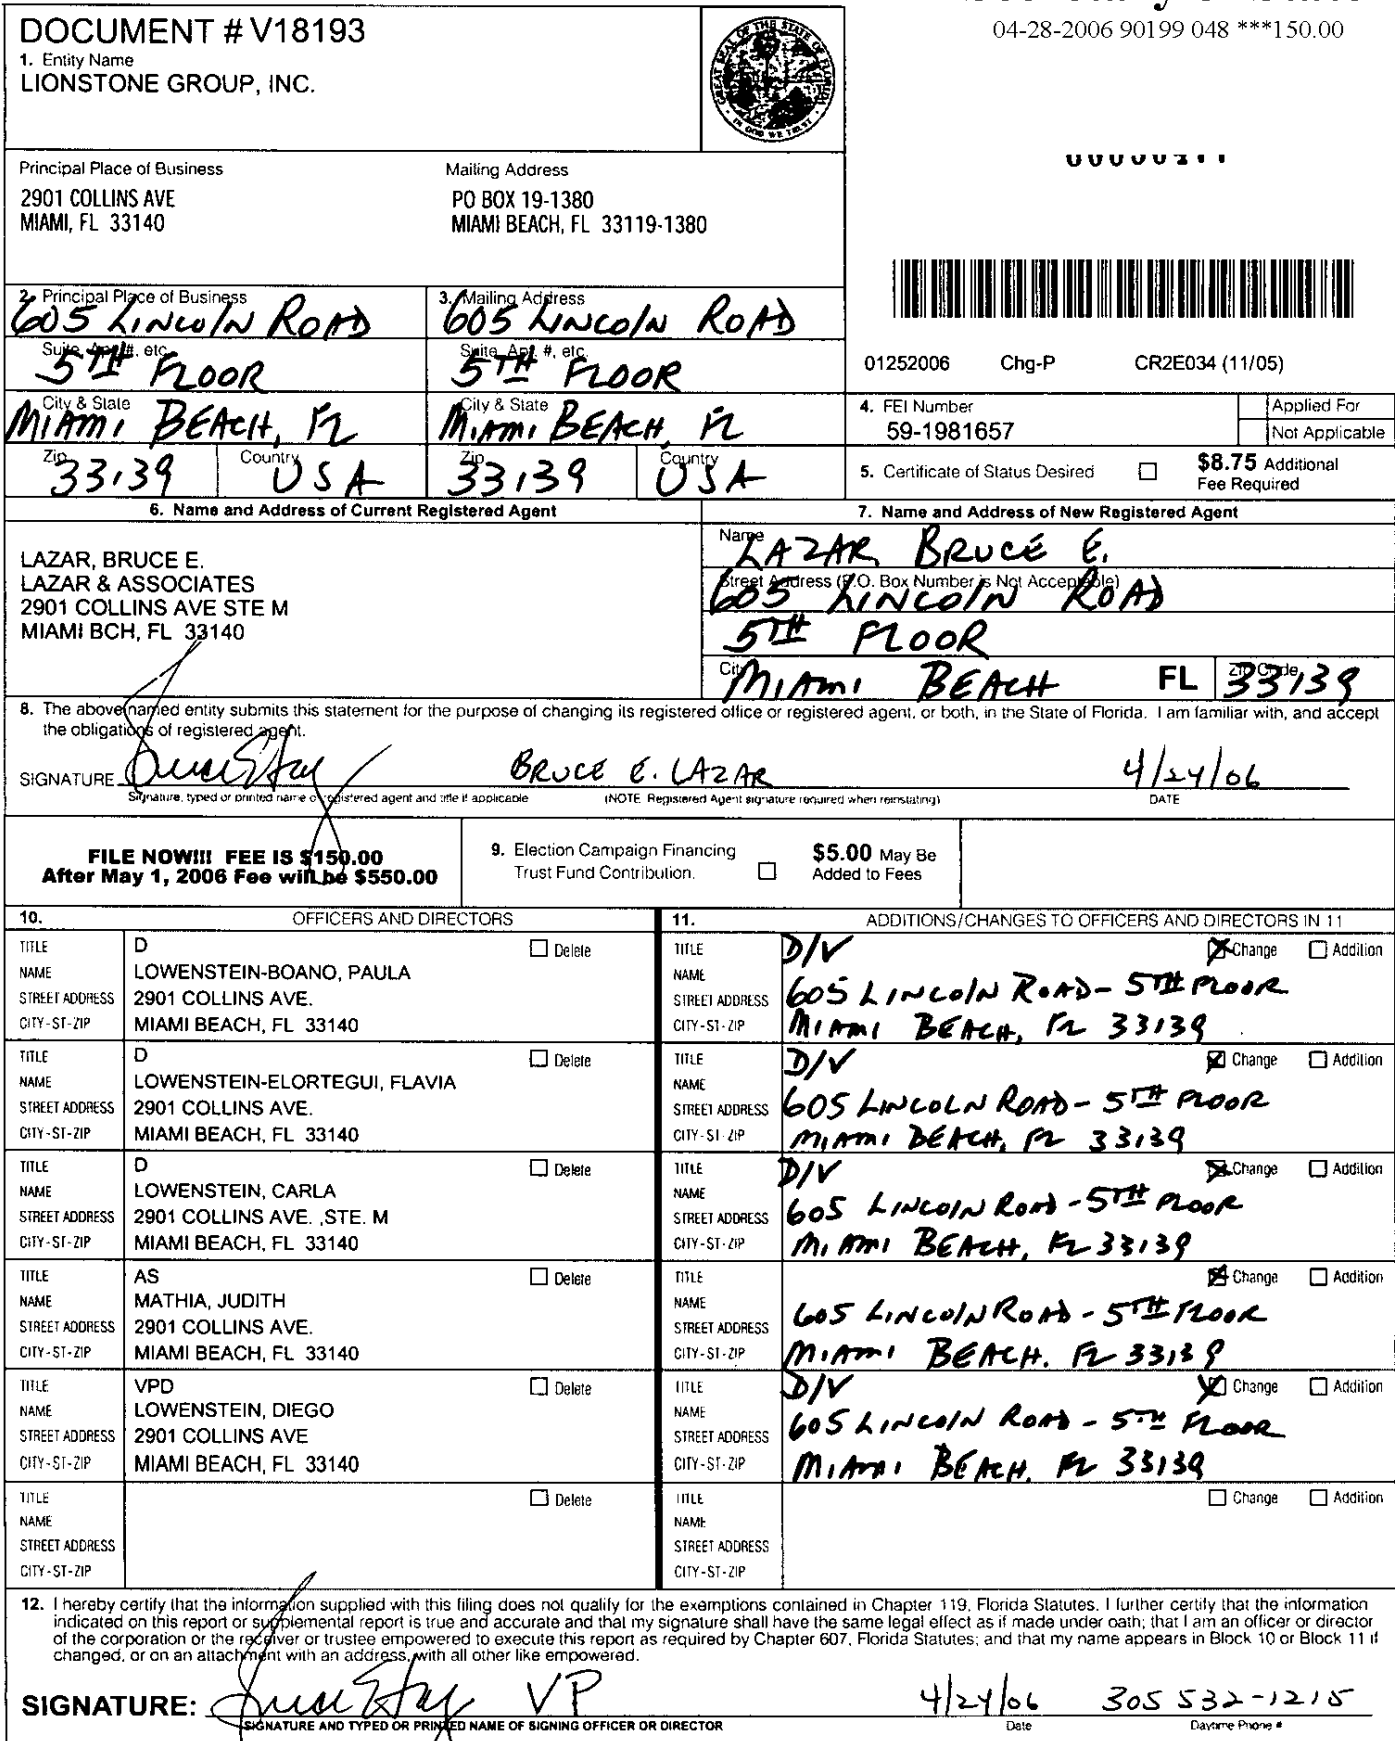 DOCUMENT # V18193
04-28-2006 90199 048 ***150.00
1. Entity Name
LIONSTONE GROUP, INC.
GREAT SEAL OF THE STATE OF FLORIDA
IN GOD WE TRUST
Principal Place of Business
Mailing Address
2901 COLLINS AVE
MIAMI, FL 33140
PO BOX 19-1380
MIAMI BEACH, FL 33119-1380
2. Principal Place of Business
605 LINCOLN ROAD
3. Mailing Address
605 LINCOLN ROAD
Suite, Apt. #, etc.
5TH FLOOR
Suite, Apt. #, etc.
5TH FLOOR
City & State
MIAMI BEACH, FL
City & State
MIAMI BEACH, FL
Zip
33139
Country
USA
Zip
33139
Country
USA
01252006 Chg-P CR2E034 (11/05)
4. FEI Number
59-1981657
Applied For
Not Applicable
5. Certificate of Status Desired
$8.75 Additional
Fee Required
6. Name and Address of Current Registered Agent
LAZAR, BRUCE E.
LAZAR & ASSOCIATES
2901 COLLINS AVE STE M
MIAMI BCH, FL 33140
7. Name and Address of New Registered Agent
Name
LAZAR, BRUCE E.
Street Address (P.O. Box Number is Not Acceptable)
605 LINCOLN ROAD
5TH FLOOR
City
MIAMI BEACH FL
Zip Code
33139
8. The above named entity submits this statement for the purpose of changing its registered office or registered agent, or both, in the State of Florida. I am familiar with, and accept
the obligations of registered agent.
SIGNATURE BRUCE E. LAZAR 4/24/06
Signature, typed or printed name of registered agent and title if applicable (NOTE Registered Agent signature required when reinstating) DATE
FILE NOW!!! FEE IS $150.00
After May 1, 2006 Fee will be $550.00
9. Election Campaign Financing
Trust Fund Contribution.
$5.00 May Be
Added to Fees
10. OFFICERS AND DIRECTORS
11. ADDITIONS/CHANGES TO OFFICERS AND DIRECTORS IN 11
TITLE D Delete
NAME LOWENSTEIN-BOANO, PAULA
STREET ADDRESS 2901 COLLINS AVE.
CITY-ST-ZIP MIAMI BEACH, FL 33140
TITLE D/V Change Addition
NAME
STREET ADDRESS 605 LINCOLN ROAD - 5TH FLOOR
CITY-ST-ZIP MIAMI BEACH, FL 33139
TITLE D Delete
NAME LOWENSTEIN-ELORTEGUI, FLAVIA
STREET ADDRESS 2901 COLLINS AVE.
CITY-ST-ZIP MIAMI BEACH, FL 33140
TITLE D/V Change Addition
NAME
STREET ADDRESS 605 LINCOLN ROAD - 5TH FLOOR
CITY-ST-ZIP MIAMI BEACH, FL 33139
TITLE D Delete
NAME LOWENSTEIN, CARLA
STREET ADDRESS 2901 COLLINS AVE. ,STE. M
CITY-ST-ZIP MIAMI BEACH, FL 33140
TITLE D/V Change Addition
NAME
STREET ADDRESS 605 LINCOLN ROAD - 5TH FLOOR
CITY-ST-ZIP MIAMI BEACH, FL 33139
TITLE AS Delete
NAME MATHIA, JUDITH
STREET ADDRESS 2901 COLLINS AVE.
CITY-ST-ZIP MIAMI BEACH, FL 33140
TITLE Change Addition
NAME
STREET ADDRESS 605 LINCOLN ROAD - 5TH FLOOR
CITY-ST-ZIP MIAMI BEACH. FL 33139
TITLE VPD Delete
NAME LOWENSTEIN, DIEGO
STREET ADDRESS 2901 COLLINS AVE
CITY-ST-ZIP MIAMI BEACH, FL 33140
TITLE D/V Change Addition
NAME
STREET ADDRESS 605 LINCOLN ROAD - 5TH FLOOR
CITY-ST-ZIP MIAMI BEACH. FL 33139
TITLE Delete
NAME
STREET ADDRESS
CITY-ST-ZIP
TITLE Change Addition
NAME
STREET ADDRESS
CITY-ST-ZIP
12. I hereby certify that the information supplied with this filing does not qualify for the exemptions contained in Chapter 119, Florida Statutes. I further certify that the information
indicated on this report or supplemental report is true and accurate and that my signature shall have the same legal effect as if made under oath; that I am an officer or director
of the corporation or the receiver or trustee empowered to execute this report as required by Chapter 607, Florida Statutes; and that my name appears in Block 10 or Block 11 if
changed, or on an attachment with an address, with all other like empowered.
SIGNATURE: VP 4/24/06 305 532-1215
SIGNATURE AND TYPED OR PRINTED NAME OF SIGNING OFFICER OR DIRECTOR Date Daytime Phone #